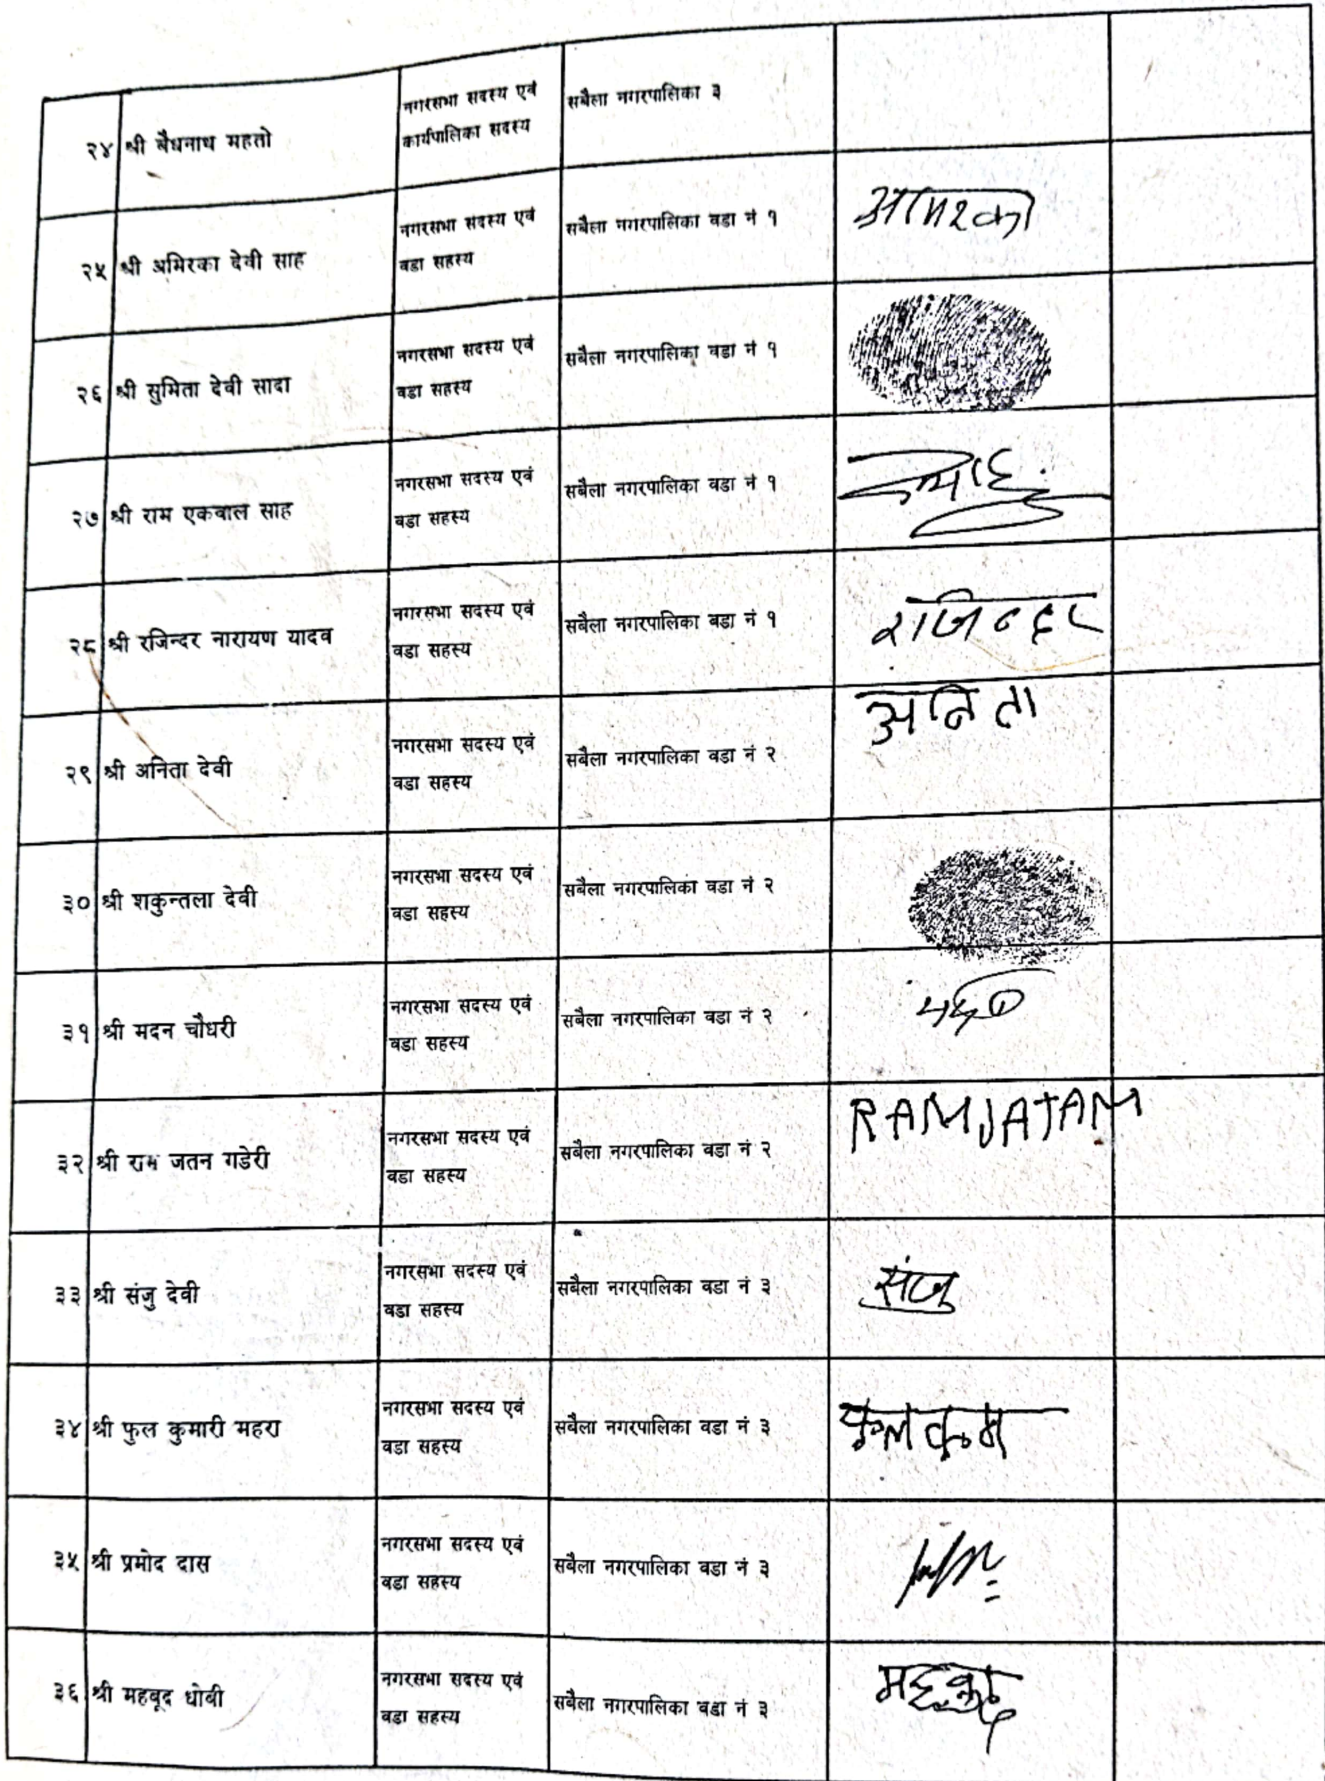 २४ श्री बैधनाथ महतो
नगरसभा सदस्य एवं
कार्यपालिका सदस्य
सबैला नगरपालिका ३
२५ श्री अमिरका देवी साह
नगरसभा सदस्य एवं
वडा सहस्य
सबैला नगरपालिका वडा नं १
अमिरका
२६ श्री सुमिता देवी सादा
नगरसभा सदस्य एवं
वडा सहस्य
सबैला नगरपालिका वडा नं १
२७ श्री राम एकवाल साह
नगरसभा सदस्य एवं
वडा सहस्य
सबैला नगरपालिका वडा नं १
२८ श्री रजिन्दर नारायण यादव
नगरसभा सदस्य एवं
वडा सहस्य
सबैला नगरपालिका वडा नं १
राजिन्दर
२९ श्री अनिता देवी
नगरसभा सदस्य एवं
वडा सहस्य
सबैला नगरपालिका वडा नं २
अनिता
३० श्री शकुन्तला देवी
नगरसभा सदस्य एवं
वडा सहस्य
सबैला नगरपालिका वडा नं २
३१ श्री मदन चौधरी
नगरसभा सदस्य एवं
वडा सहस्य
सबैला नगरपालिका वडा नं २
३२ श्री राम जतन गडेरी
नगरसभा सदस्य एवं
वडा सहस्य
सबैला नगरपालिका वडा नं २
RAMJATAN
३३ श्री संजु देवी
नगरसभा सदस्य एवं
वडा सहस्य
सबैला नगरपालिका वडा नं ३
संजु
३४ श्री फुल कुमारी महरा
नगरसभा सदस्य एवं
वडा सहस्य
सबैला नगरपालिका वडा नं ३
३५ श्री प्रमोद दास
नगरसभा सदस्य एवं
वडा सहस्य
सबैला नगरपालिका वडा नं ३
३६ श्री महबूद धोबी
नगरसभा सदस्य एवं
वडा सहस्य
सबैला नगरपालिका वडा नं ३